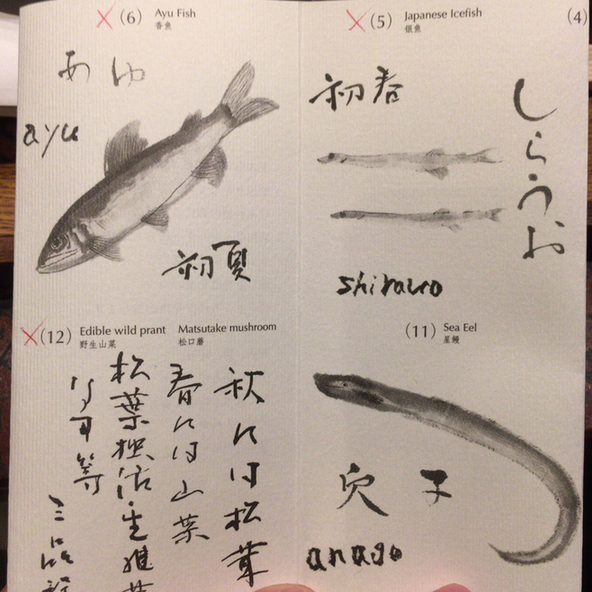 (6) Ayu Fish
香魚
あゆ
ayu
初夏
(5) Japanese Icefish
銀魚
初春
しらうお
shirauo
(4)
(12) Edible wild prant Matsutake mushroom
野生山菜 松口蘑
秋には松茸
春には山菜
松葉独活・生椎茸
(11) Sea Eel
星鰻
穴子
anago